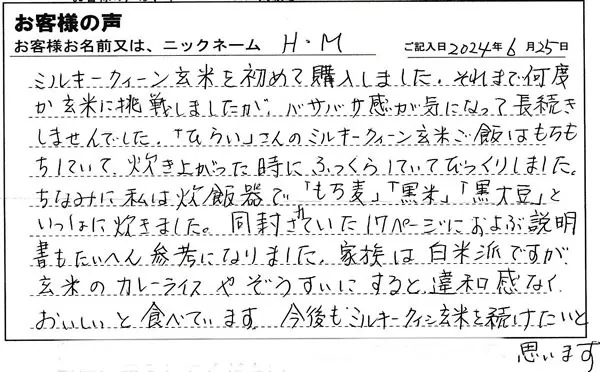 お客様の声
お客様お名前又は、ニックネーム H・M ご記入日2024年6月25日
ミルキークィーン玄米を初めて購入しました。それまで何度
か玄米に挑戦しましたが、バサバサ感が気になって長続き
しませんでした。「ひらい」さんのミルキークィーン玄米ご飯はもちも
ちしていて 炊き上がった時にふっくらしていてびっくりしました。
ちなみに私は炊飯器で「もち麦」「黒米」「黒大豆」と
いっしょに炊きました。同封されていた17ページにおよぶ説明
書もたいへん参考になりました。家族は白米派ですが
玄米のカレーライスやぞうすいにすると違和感なく
おいしいと食べています。今後もミルキークィーン玄米を続けたいと
思います